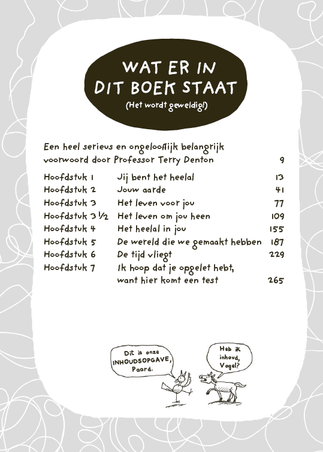 WAT ER IN
DIT BOEK STAAT
(Het wordt geweldig!)
Een heel serieus en ongelooflijk belangrijk
voorwoord door Professor Terry Denton 9
Hoofdstuk 1 Jij bent het heelal 13
Hoofdstuk 2 Jouw aarde 41
Hoofdstuk 3 Het leven voor jou 77
Hoofdstuk 3 1/2 Het leven om jou heen 109
Hoofdstuk 4 Het heelal in jou 155
Hoofdstuk 5 De wereld die we gemaakt hebben 187
Hoofdstuk 6 De tijd vliegt 229
Hoofdstuk 7 Ik hoop dat je opgelet hebt,
want hier komt een test 265
Dit is onze
INHOUDSOPGAVE,
Paard.
Heb ik
inhoud,
Vogel?